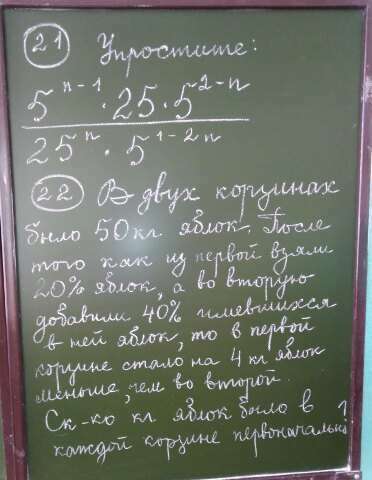 21 Упростите:
5^{n-1} · 25 · 5^{2-n}
25^n · 5^{1-2n}
22 В двух корзинах
было 50 кг яблок. После
того как из первой взяли
20% яблок, а во вторую
добавили 40% имевшихся
в ней яблок, то в первой
корзине стало на 4 кг яблок
меньше, чем во второй.
Ск-ко кг яблок было в
каждой корзине первоначально?